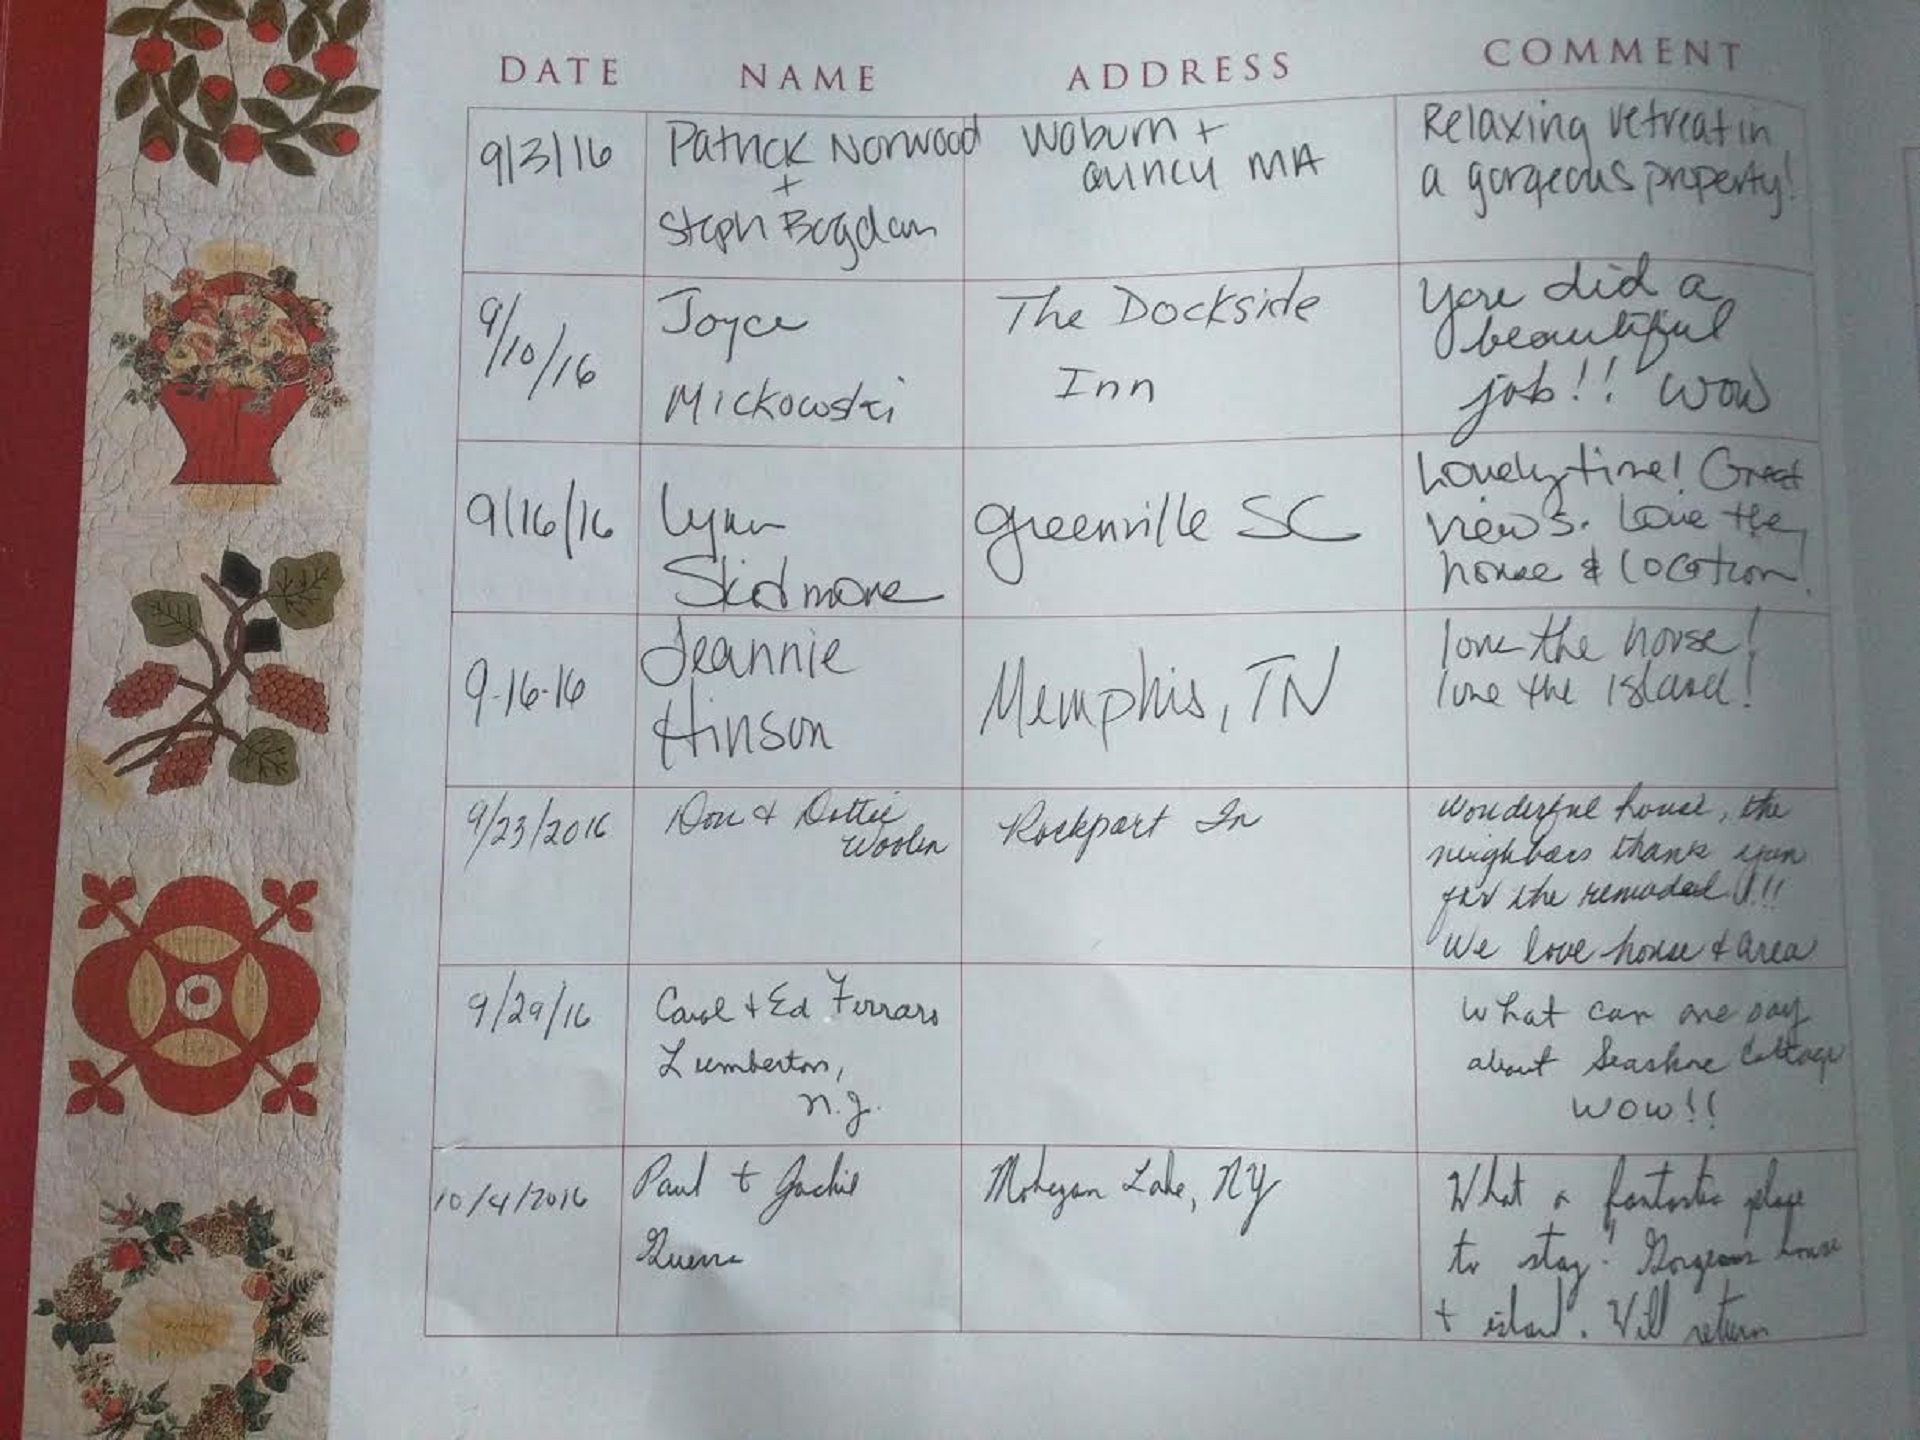 DATE NAME ADDRESS COMMENT
9/3/16
Patrick Norwood
+
Steph Bogdan
Woburn +
Quincy MA
Relaxing retreat in
a gorgeous property!
9/10/16
Joyce
Mickowski
The Dockside
Inn
You did a
beautiful
job!! Wow
9/16/16
Lynn
Skidmore
Greenville SC
Lovely time! Great
views. Love the
house & location!
9-16-16
Jeannie
Hinson
Memphis, TN
love the house!
love the island!
9/23/2016
Don & Dottie
Woolen
Rockport In
Wonderful house, the
neighbors thank you
for the remodel !!!
We love house & area
9/29/16
Carol + Ed Ferraro
Lumberton,
N.J.
What can one say
about Seashore Cottage
WOW!!
10/4/2016
Paul + Jackie
Guerra
Mohegan Lake, NY
What a fantastic place
to stay! Gorgeous house
+ island. Will return